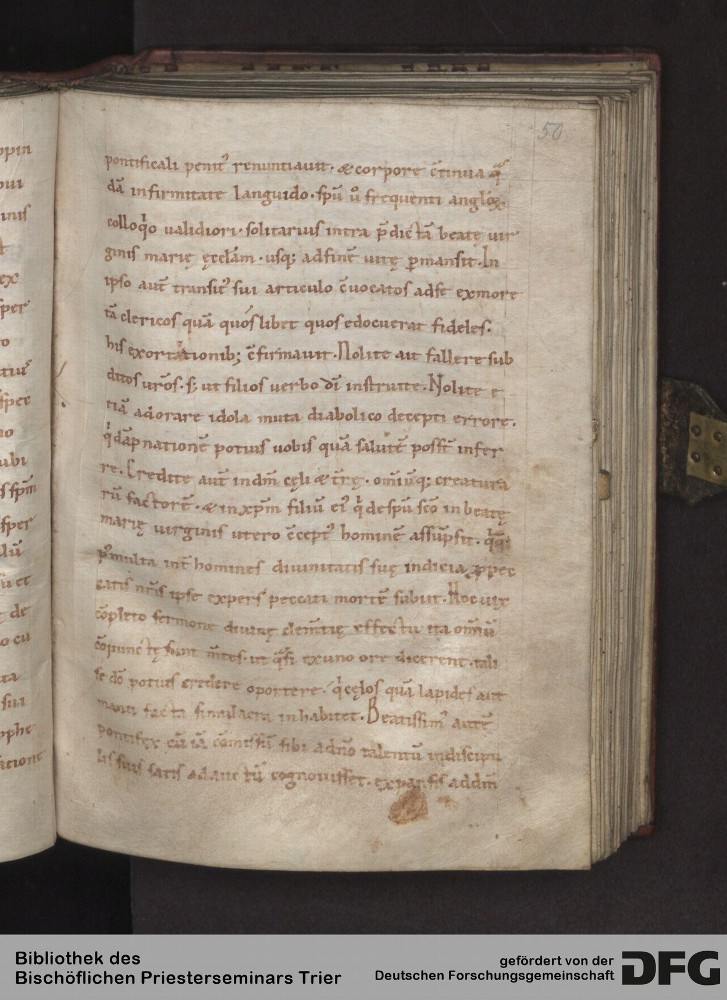 50
pontificali penit᷒ renuntiauit. & corpore c̄tinua q̄
dā infirmitate languido. sp̄u u̅ frequenti angloꝝ.
colloq̊o validiori. solitarius intra p̄dictā beatę uir
ginis marię ęcclam̄. usq; ad finē vitę ꝑmansit. In
ipso aut̄ transit᷒ sui articulo c̄uocatos adsē ex more
tā clericos quā quos libet quos edocuerat fideles.
his exortationib; c̄firmauit. Nolite ait fallere sub
ditos ur̄os. s; ut filios uerbo dī instruite. Nolite e
tiā adorare idola muta diabolico decepti errore.
dāpnationē potius uobis quā salutē poss̄t infer
re. Credite aut̄ in dm̄ cęli & t̄rę. om̄iūq; creatura
rū factorē. & in xp̄m filiū ei᷒ de sp̄u sc̄o in beatę
marię virginis utero c̄cept᷒ hominē assūpsit.
multa int̄ homines diuinitatis suę indicia pec
catis nr̄is ipse expers peccati mortē subiit. Hoc uix
c̄pleto sermone diuinę clem̄tię effectu ita om̄iū
c̄iunctę sunt m̄tes. ut q̄si ex uno ore dicerent. tali
se dō potius credere oportere. cęlos quā lapides aut
manu facta simulacra inhabitet. Beatissim᷒ autē
pontifex cū iā c̄missū sibi a dn̄o talentū in discipu
lis suis satis adauctū cognouisset. expansis ad dm̄
Bibliothek des
Bischöflichen Priesterseminars Trier
gefördert von der
Deutschen Forschungsgemeinschaft
DFG